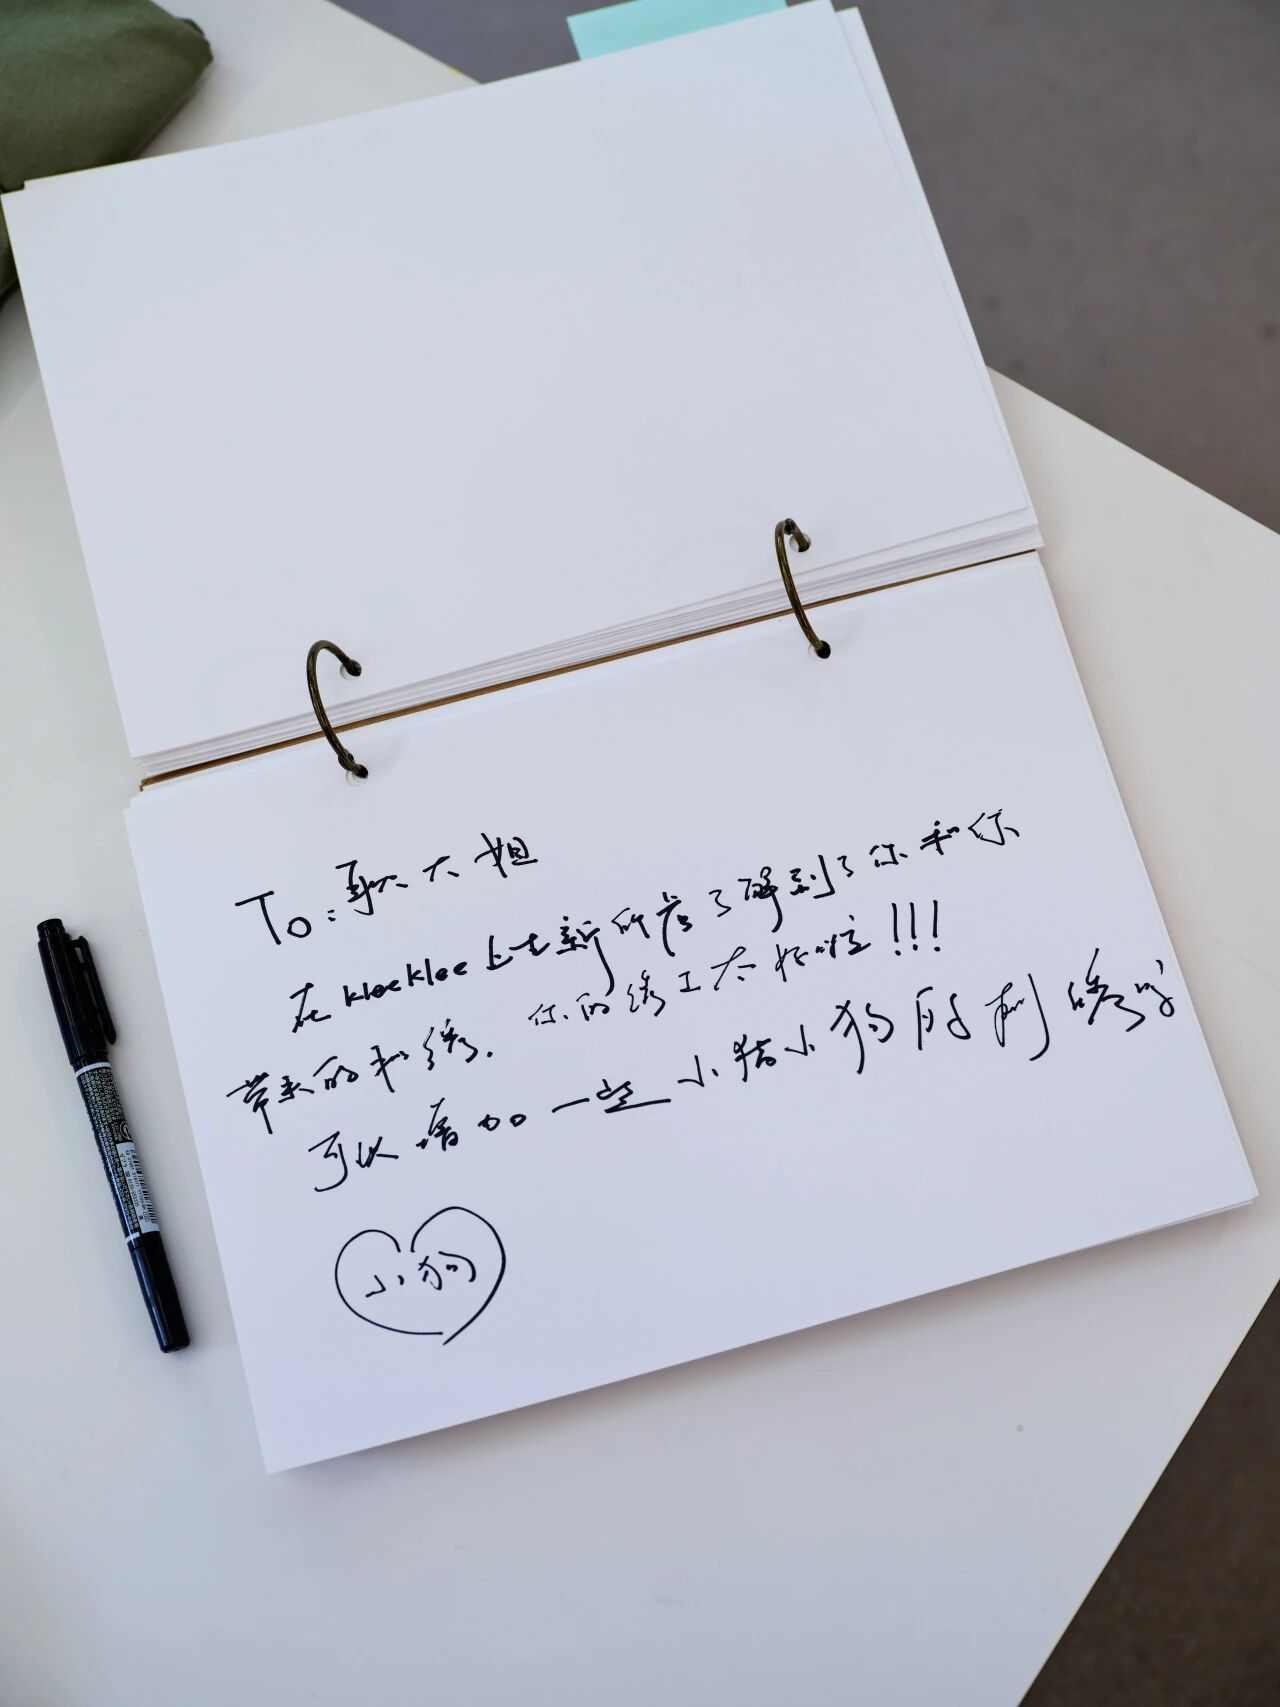 To: 耿大姐
在klee klee 上土新所店了解到了你和你
带来的扎绣. 你的绣工太好啦!!!
可以增加一些小猪小狗的刺绣吗
小狗